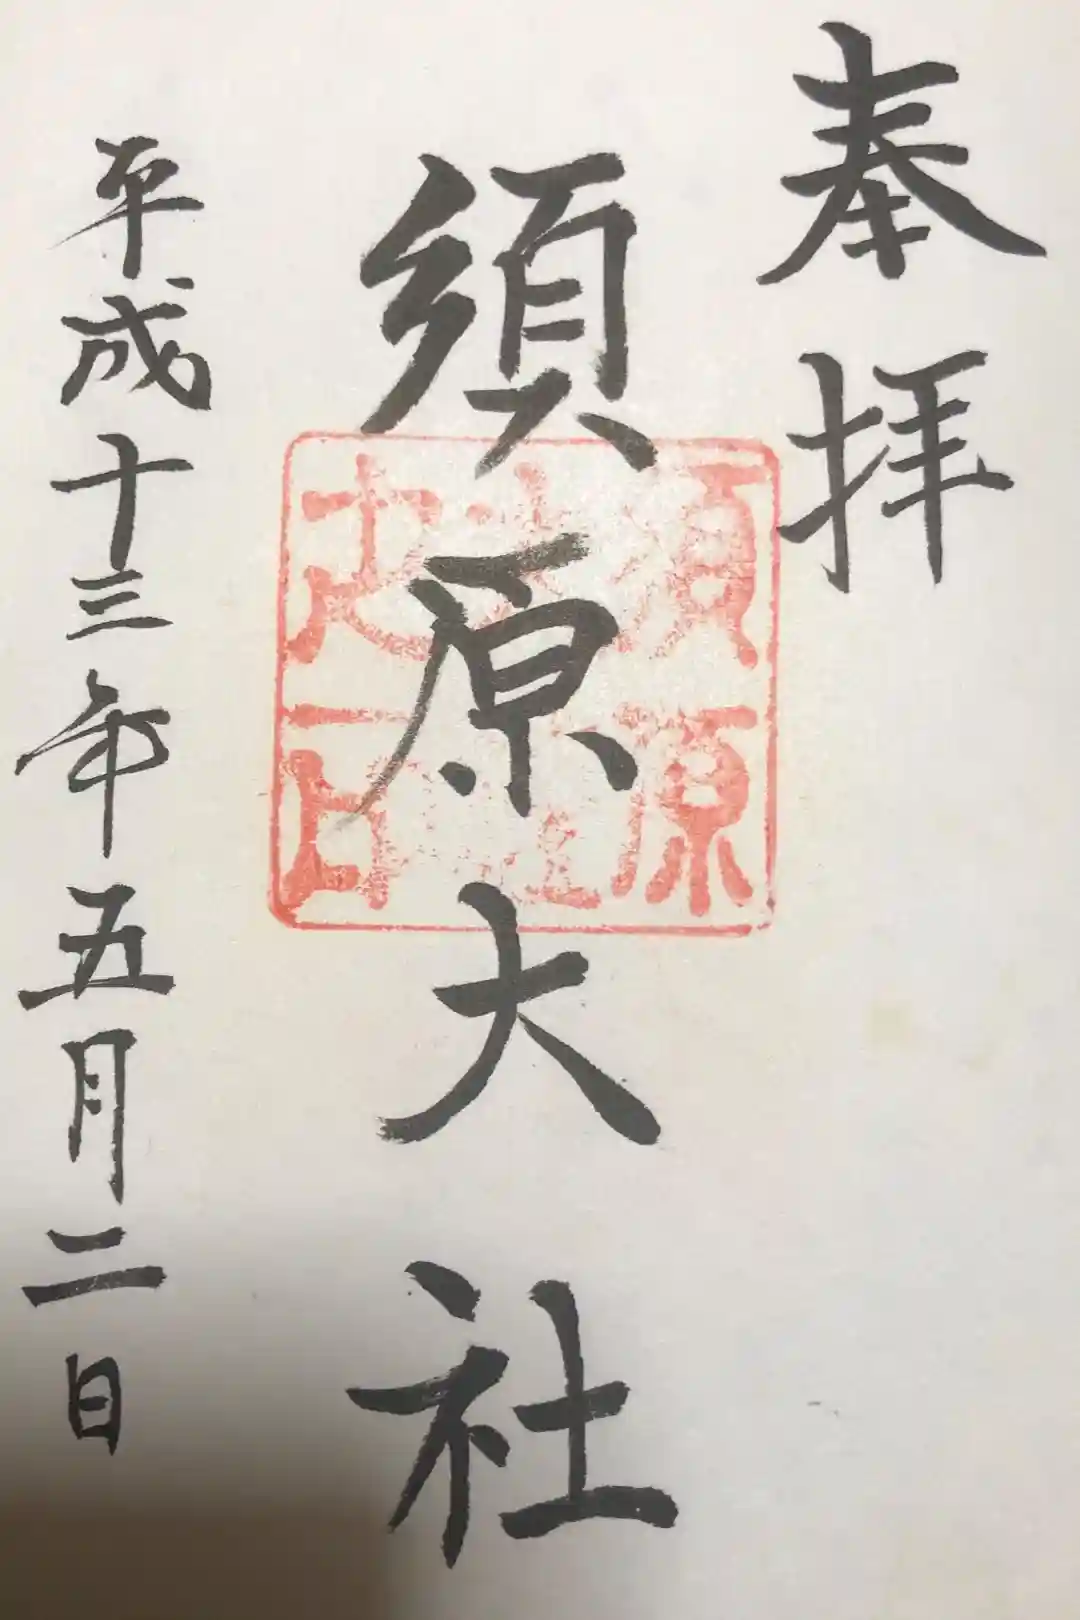 奉拝
須原大社
平成十三年五月二日
須原
大社
之印